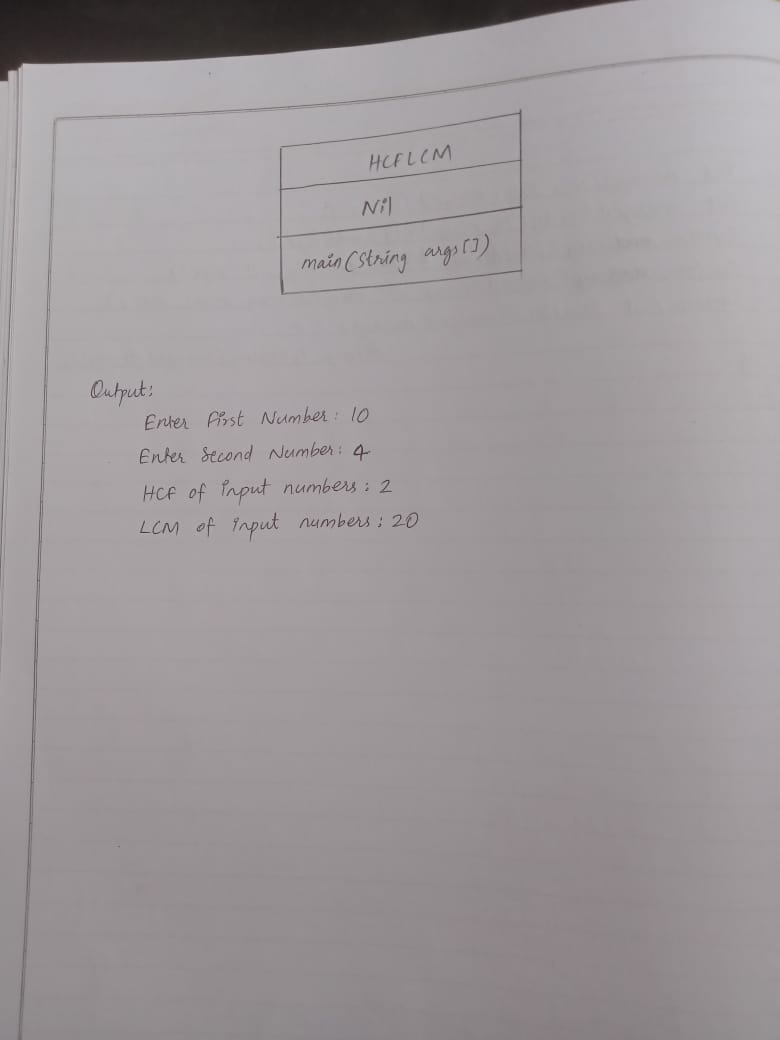 HCFLCM
Nil
main(String args[])
Output:
Enter First Number: 10
Enter Second Number: 4
HCF of input numbers: 2
LCM of input numbers: 20